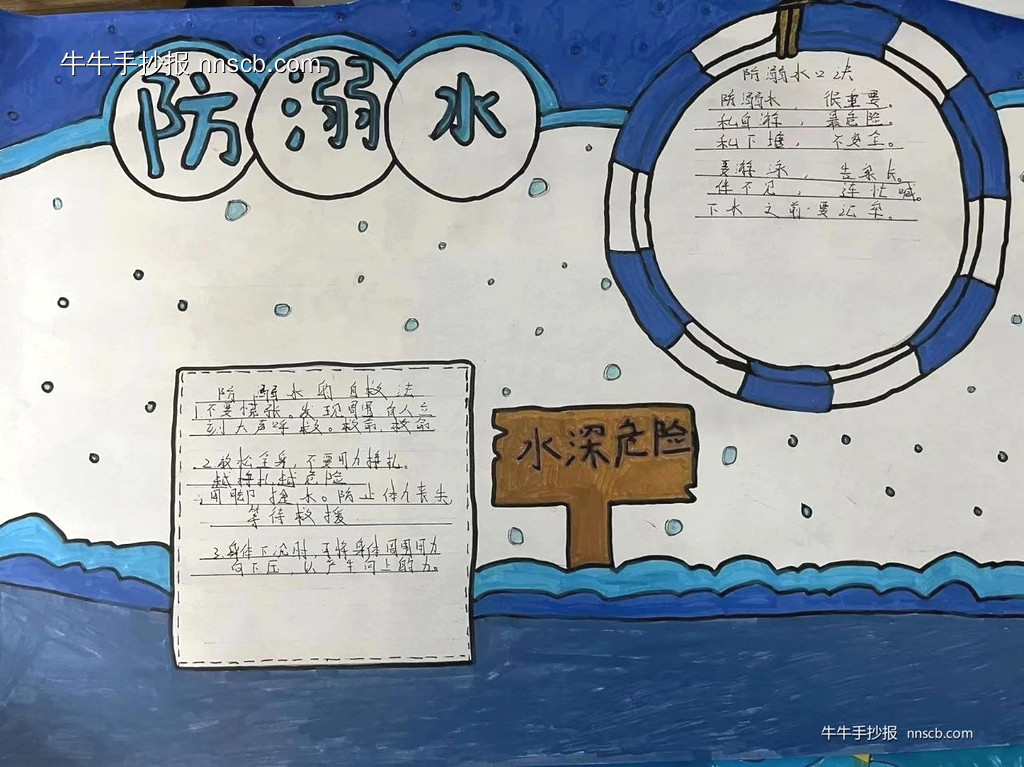 牛牛手抄报 nnscb.com
防溺水
防溺水口决
防溺水，很重要。
私自游，最危险。
私下塘，不安全。
要游泳，告家长。
伴不见，连忙喊。
下水之前要
防溺水的自救法
1不要慌张。发现周围有人立
刻大声呼救。
2放松全身，不要用力挣扎。
越挣扎越危险
用脚 水。防止体 丧失
等待救援
3.身体下沉时，
向下压，以产生向上的力。
水深危险
牛牛手抄报 nnscb.com